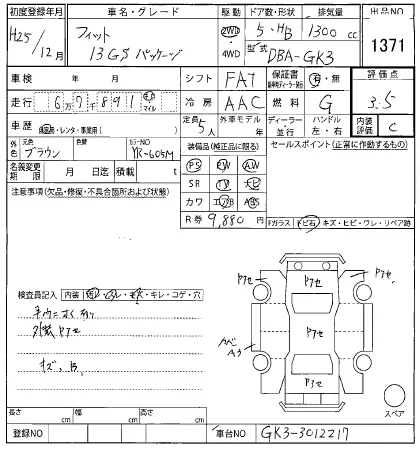 初度登録年月 車名・グレード 駆動 ドア数・形状 排気量 出品NO
H25/12月 フィット 13GSパッケージ 2WD 4WD 5・HB 1300cc 1371
型式 DBA-GK3
車検 年 月 シフト FAT 保証書 有・無 評価点
走行 6万7千891 km マイル 冷房 AAC 燃料 G 3.5
車歴 自家用・レンタ・事業用( ) 定員 5人 外車モデル 年 ディーラー 並行 ハンドル 左・右 内装評価 C
外色 元色 ブラウン 色替 カラーNO YR-605M 装備品(純正品に限る) セールスポイント(正常に作動するもの)
名義変更期限 月 日迄 積載 t PS PW AW
注意事項(欠品・修復・不具合箇所および状態) SR TV ナビ
カワ エアB ABS
R券 9,880円 Fガラス トビ石・キズ・ヒビ・ワレ・リペア跡
検査員記入 内装
キレ・コゲ・穴
外装
キズ、
長さ cm 幅 cm 高さ cm スペア
登録NO 車台NO GK3-3012217